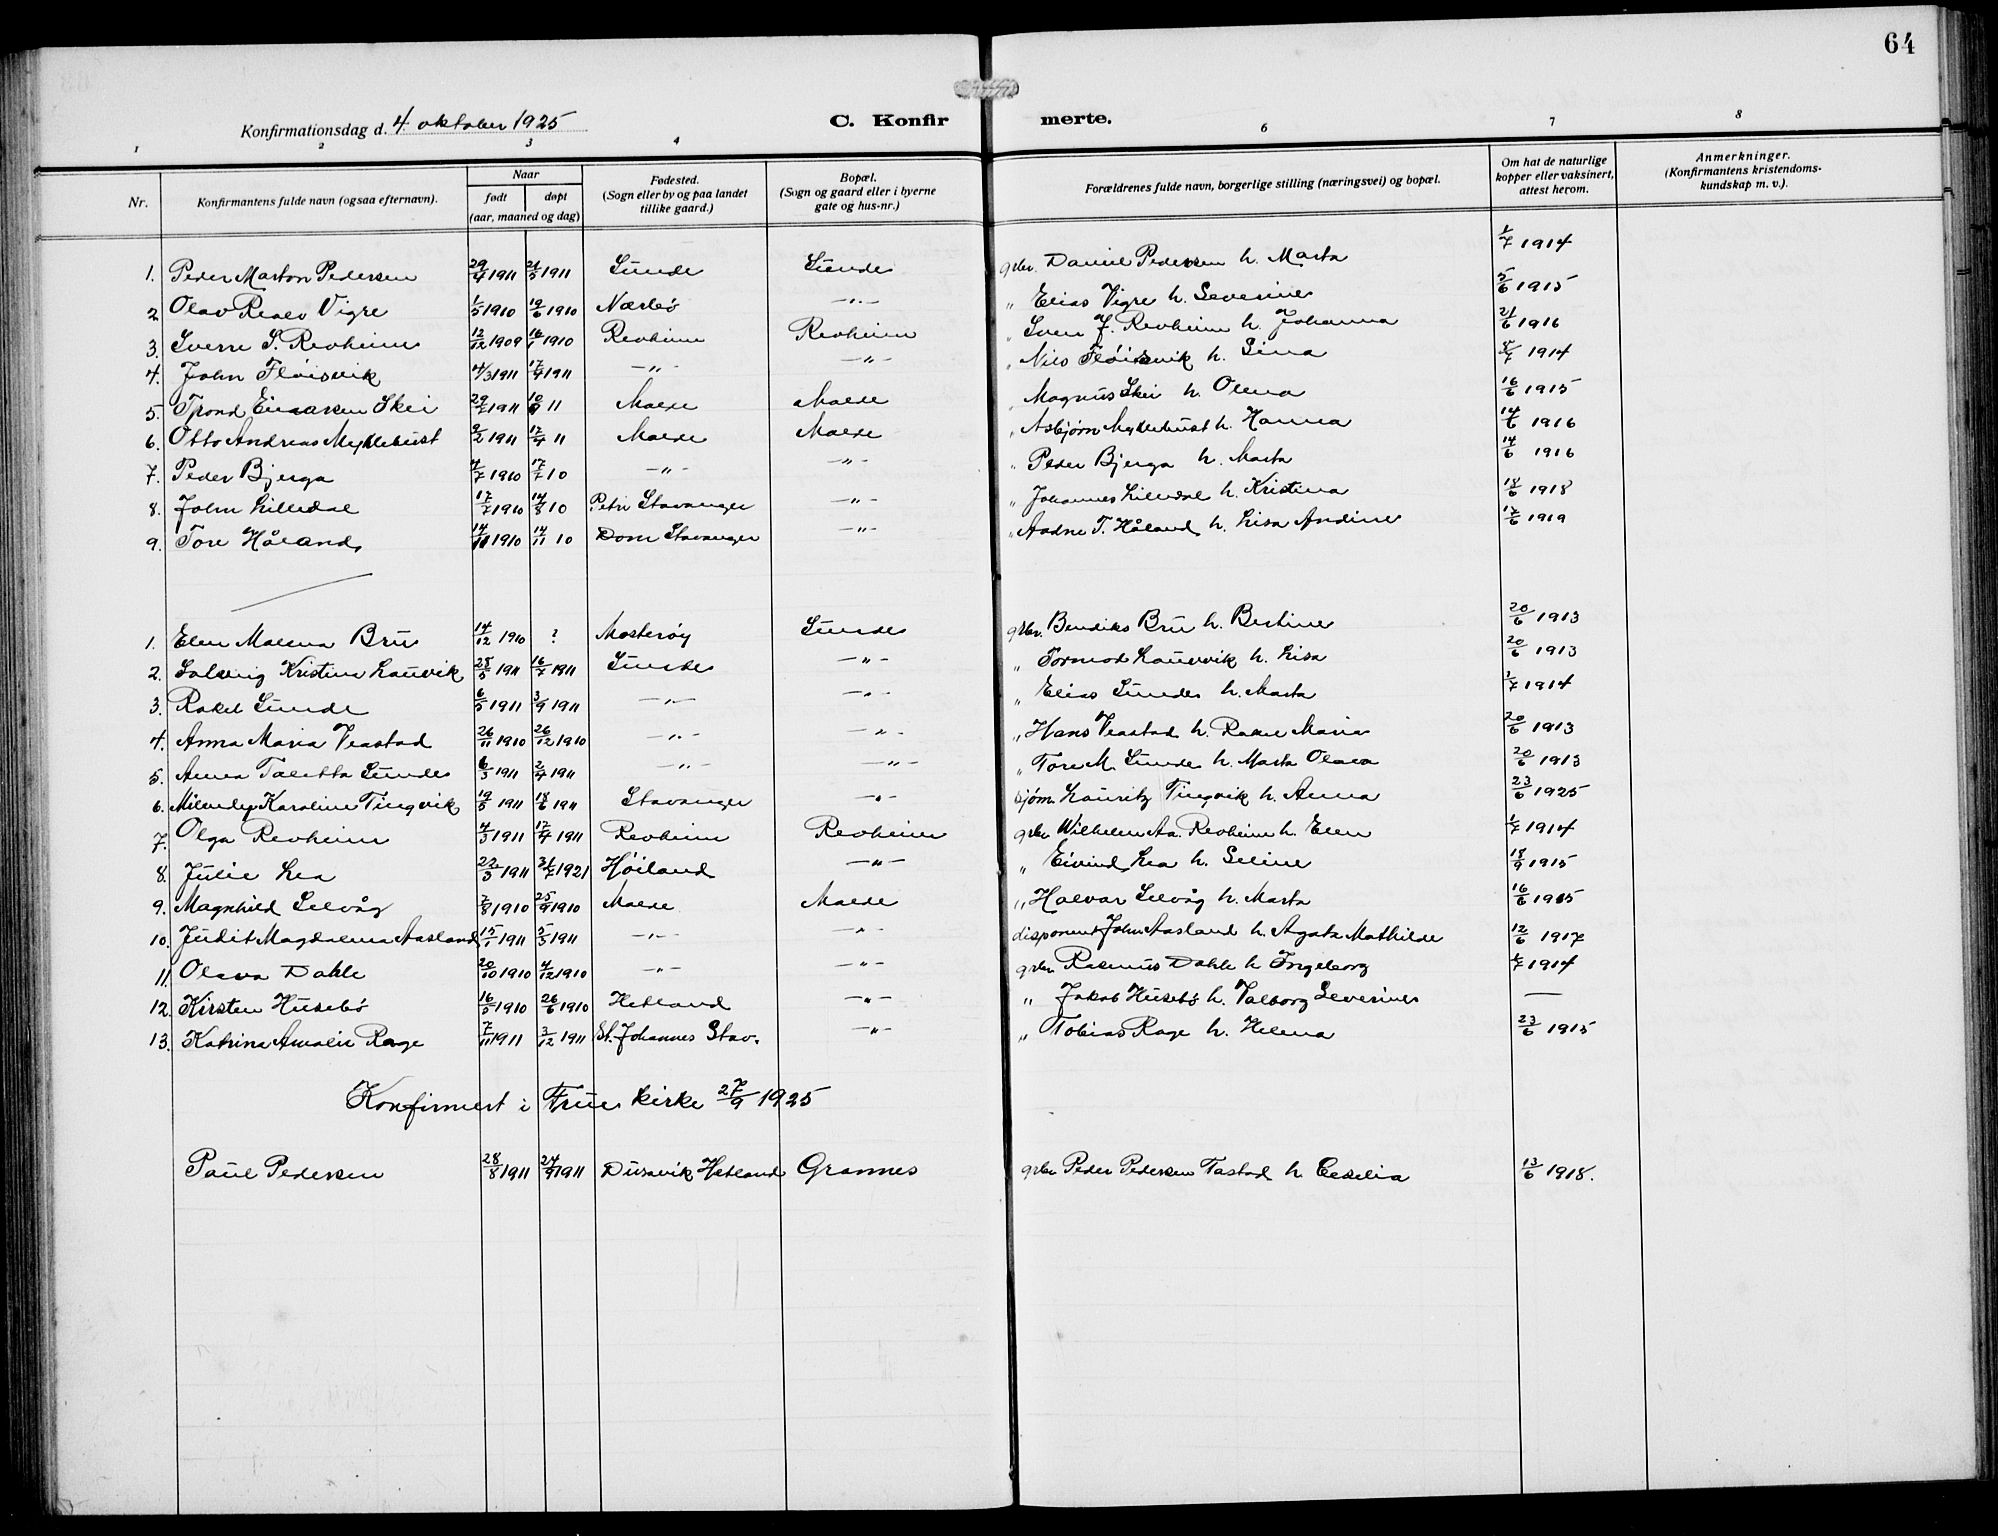 64
Konfirmationsdag d. 4 oktober 1925 C. Konfir merte.
1 2 3 4 6 7 8
Nr. Konfirmantens fulde navn (ogsaa efternavn). Naar født døpt (aar, maaned og dag) Fødested. (Sogn eller by og paa landet tillike gaard.) Bopæl. (Sogn og gaard eller i byerne gate og hus-nr.) Forældrenes fulde navn, borgerlige stilling (næringsvei) og bopæl. Om hat de naturlige kopper eller vaksinert, attest herom. Anmerkninger. (Konfirmantens kristendoms-kundskap m. v.).
1. Peder Marton Pedersen 29/4 1911 21/5 1911 Sunde Sunde grbr. Daniel Pedersen h. Marta 1/7 1914
2 Olav Vigre 1/5 1910 19/6 1910 Nærbø —"— " Elias Vigre h. Severine 5/6 1915
3. Sverre S. Revheim 12/12 1909 16/1 1910 Revheim Revheim " Sven J. Revheim h. Johanna 21/6 1916
4. John Fløisvik 4/3 1911 17/4 1911 —"— —"— " Nils Fløisvik h. Sina 1914
5. Trond Einarsen Skei 29/7 1911 10/9 11 Malde Malde " Magnus Skei h. Olena 16/6 1915
6. Otto Andreas Myklebust 9/2 1911 17/4 11 Malde Malde " Asbjørn Myklebust h. Hanna 14/6 1916
7. Peder Bjerga 4/7 1910 17/7 10 —"— —"— " Peder Bjerga h. Marta 14/6 1916
8. John Lilledal 17/7 1910 14/8 10 Petri Stavanger —"— " Johannes Lilledal h. Kristina 18/6 1918
9. Tore Håland 1910 14/11 10 Dom Stavanger —"— " Aadne T. Håland h. Lisa Andine 17/6 1919
1. Elen Malena Bru 14/12 1910 ? Mosterøy Sunde grbr. Bendiks Bru h. Bertine 20/6 1913
2. Solveig Kristine Lauvik 28/5 1911 16/7 1911 Sunde —"— " Tormod Lauvvik h. Lisa 20/6 1913
3. Rakel Sunde 6/5 1911 3/9 1911 —"— —"— " Elias Sunde h. Marta 1/7 1914
4. Anna Maria Veastad 26/11 1910 26/12 1910 —"— —"— " Hans Veastad h. Rakel Maria 20/6 1913
5. Anna Taletta Sunde 6/3 1911 2/4 1911 —"— —"— " Tore M. Sunde h. Marta Olava 20/6 1913
6. Karoline Tingvik 19/5 1911 18/6 1911 Stavanger —"— sjøm. Lauritz Tingvik h. Anna 23/6 1925
7. Olga Revheim 4/3 1911 17/4 1911 Revheim Revheim grbr Wilhelm Aa. Revheim h. Elen 1/7 1914
8. Julie Lea 22/3 1911 31/7 1921 Høiland —"— " Eivind Lea h. Seline 18/9 1915
9. Magnhild Selvåg 7/8 1910 25/9 1910 Malde Malde " Halvar Selvåg h. Marta 16/6 1915
10. Judit Magdalena Aasland 15/1 1911 5/3 1911 —"— —"— disponent John Aasland h. Agata Mathilde 12/6 1917
11. Olava Dahle 20/10 1910 4/12 1910 —"— —"— grbr Rasmus Dahle h Ingeborg 1/7 1914
12. Kirsten Husebø 16/5 1910 26/6 1910 Hetland —"— " Jakob Husebø h. Valborg Severine —
13. Katrine Amalie Rage 7/11 1911 3/12 1911 St. Johannes Stav. —"— " Tobias Rage h. Helena 23/6 1915
Konfirmert i Frue kirke 27/9 1925
Paul Pedersen 28/8 1911 24/9 1911 Dusavik Hetland Grannes grbr Peder Pedersen Tastad h Cecilia 13/6 1918.